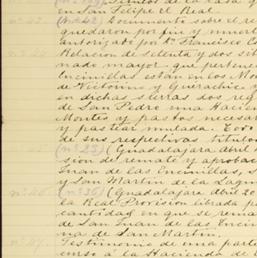 Títulos de la casa q
en San Felipe el Real.
(nº 42) Documento sobre el re
quedaron por fin y muert
autorizado por Dn. Francisco C
Relación de setenta y dos sit
nado mayor que pertene
Encinillas están en los Mo
de Victorino y Guerachic
en dichas tierras dos ref
de San Pedro una Hacie
Montes y pastos necesar
y pastear mulada. Todo
a sus respectivos títulos
(nº 25) (Guadalajara abril
sion de remate y aprobac
Juan de las Encinillas, s
y San Martin de la Lagun
(nº 25) (Guadalajara Abril 20
la Real Provision librada p
cantidad en que se rema
de San Juan de las Encin
na de San Martin.
Testimonio de una parte
curso á la Hacienda de